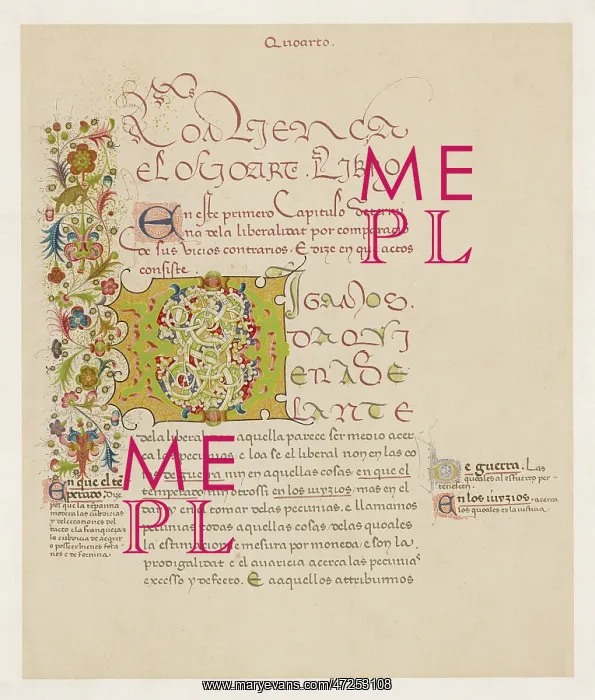 Quoarto.
Comiença
el Quoart. Libro
En este primero Capitulo determi
na dela liberalitat por comparacio
de sus vicios contrarios. E dize en que actos
consiste.
Digamos.
daqui
enade
lante
dela liberalitat aquella parece ser medio acer
ca las pecunias. e loa se el liberal non en las co
sas de guerra nin en aquellas cosas en que el
temperado nin otrossi en los iuyzios. mas en el
dar y en el tomar delas pecunias. e llamamos
pecunias todas aquellas cosas delas quoales
la estimacion e mesura por moneda. e son la
prodigalitat e el avaricia acerca las pecunias
excesso y defecto. E aaquellos attribuimos
En que el te
perado. Dize
por que la tempanna
modera las cubdicias
y delectationes del
tacto e la franqueza
la cubdicia de acquir
o posseer bienes fora
nos e de fortuna.
De guerra. Las
quoales al esfuerço per
tenescen.
En los iuyzios. acerca
los quoales es la iusticia.
ME
PL
ME
PL
www.maryevans.com/47253108